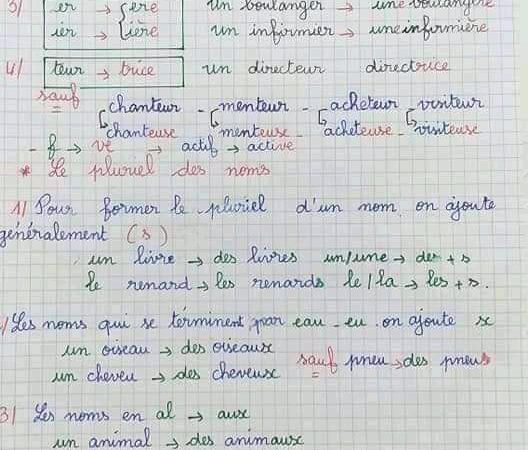 3/ er → ère un boulanger → une boulangère
ier → ière un infirmier → une infirmière
4/ teur → trice un directeur directrice
sauf chanteur - menteur - acheteur - visiteur
chanteuse menteuse - acheteuse - visiteuse
- f → ve → actif → active
* Le pluriel des noms
1/ Pour former le pluriel d'un nom, on ajoute
généralement (s)
un livre → des livres un/une → des + s
le renard → les renards le/la → les + s.
/ Les noms qui se terminent par eau - eu . on ajoute x
un oiseau → des oiseaux sauf pneu → des pneus
un cheveu → des cheveux
3/ Les noms en al → aux
un animal → des animaux